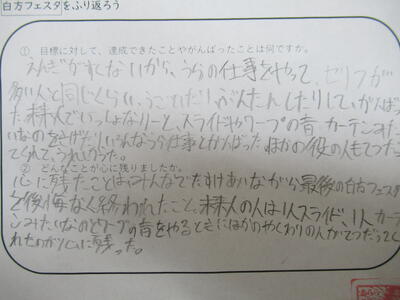 白方フェスタをふり返ろう
① 目標に対して、達成できたことやがんばったことは何ですか。
えんぎがすくないから、うらの仕事をやって、セリフが
多い人と同じくらい、うごいたり、ぶんたんしたりして、がんばっ
た。未来人でいっしょなりーと、スライドやワープの音 カーテンみた
いなのを いろんなうら仕事とがんばった。ほかの役の人もてつだっ
てくれて、うれしかった。
② どんなことが心に残りましたか。
心に残たことはみんなでたすけあいながら最後の白方フェスタ
を後悔なく終われたこと、未来人の人は1人スライド、1人カーテ
ンみたいなのとワープの音をやるときにほかのやくわりの人がてつだってく
れたのが心に残った。